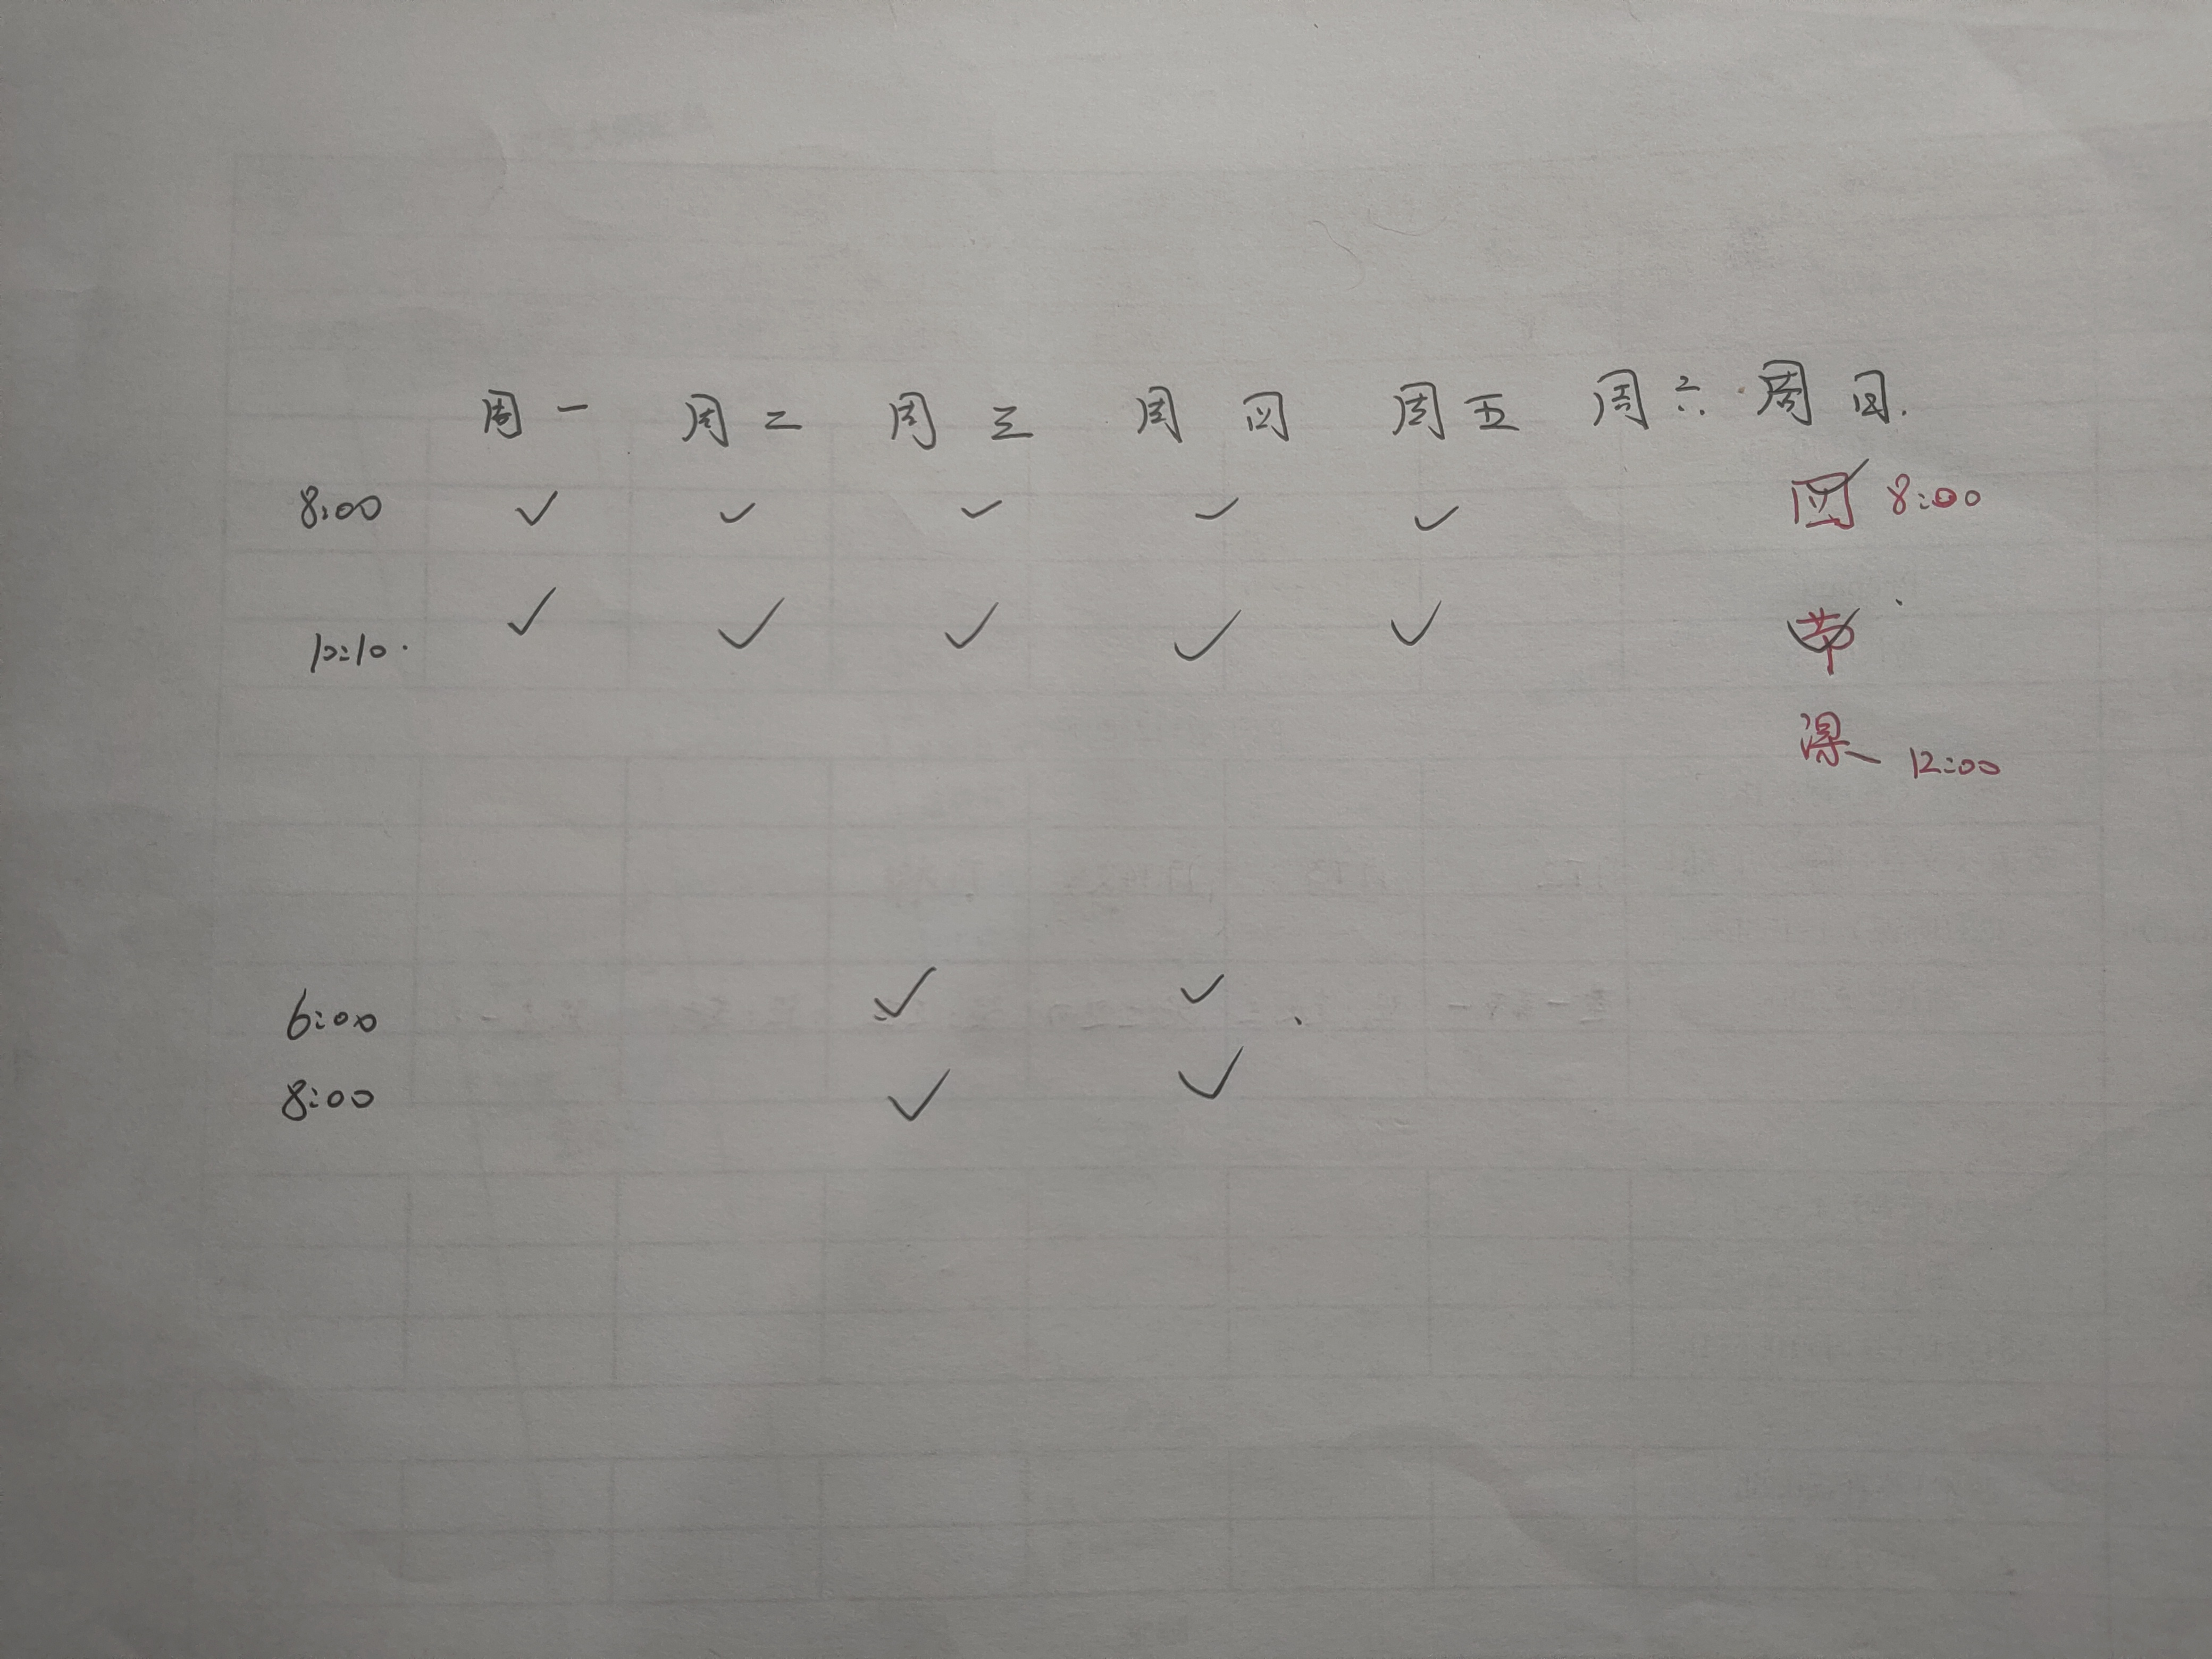 周一 周二 周三 周四 周五 周六 周四.
8:00 ✓ ✓ ✓ ✓ ✓ 四 8:00
10:10 ✓ ✓ ✓ ✓ ✓ 节
课 12:00
6:00 ✓ ✓
8:00 ✓ ✓